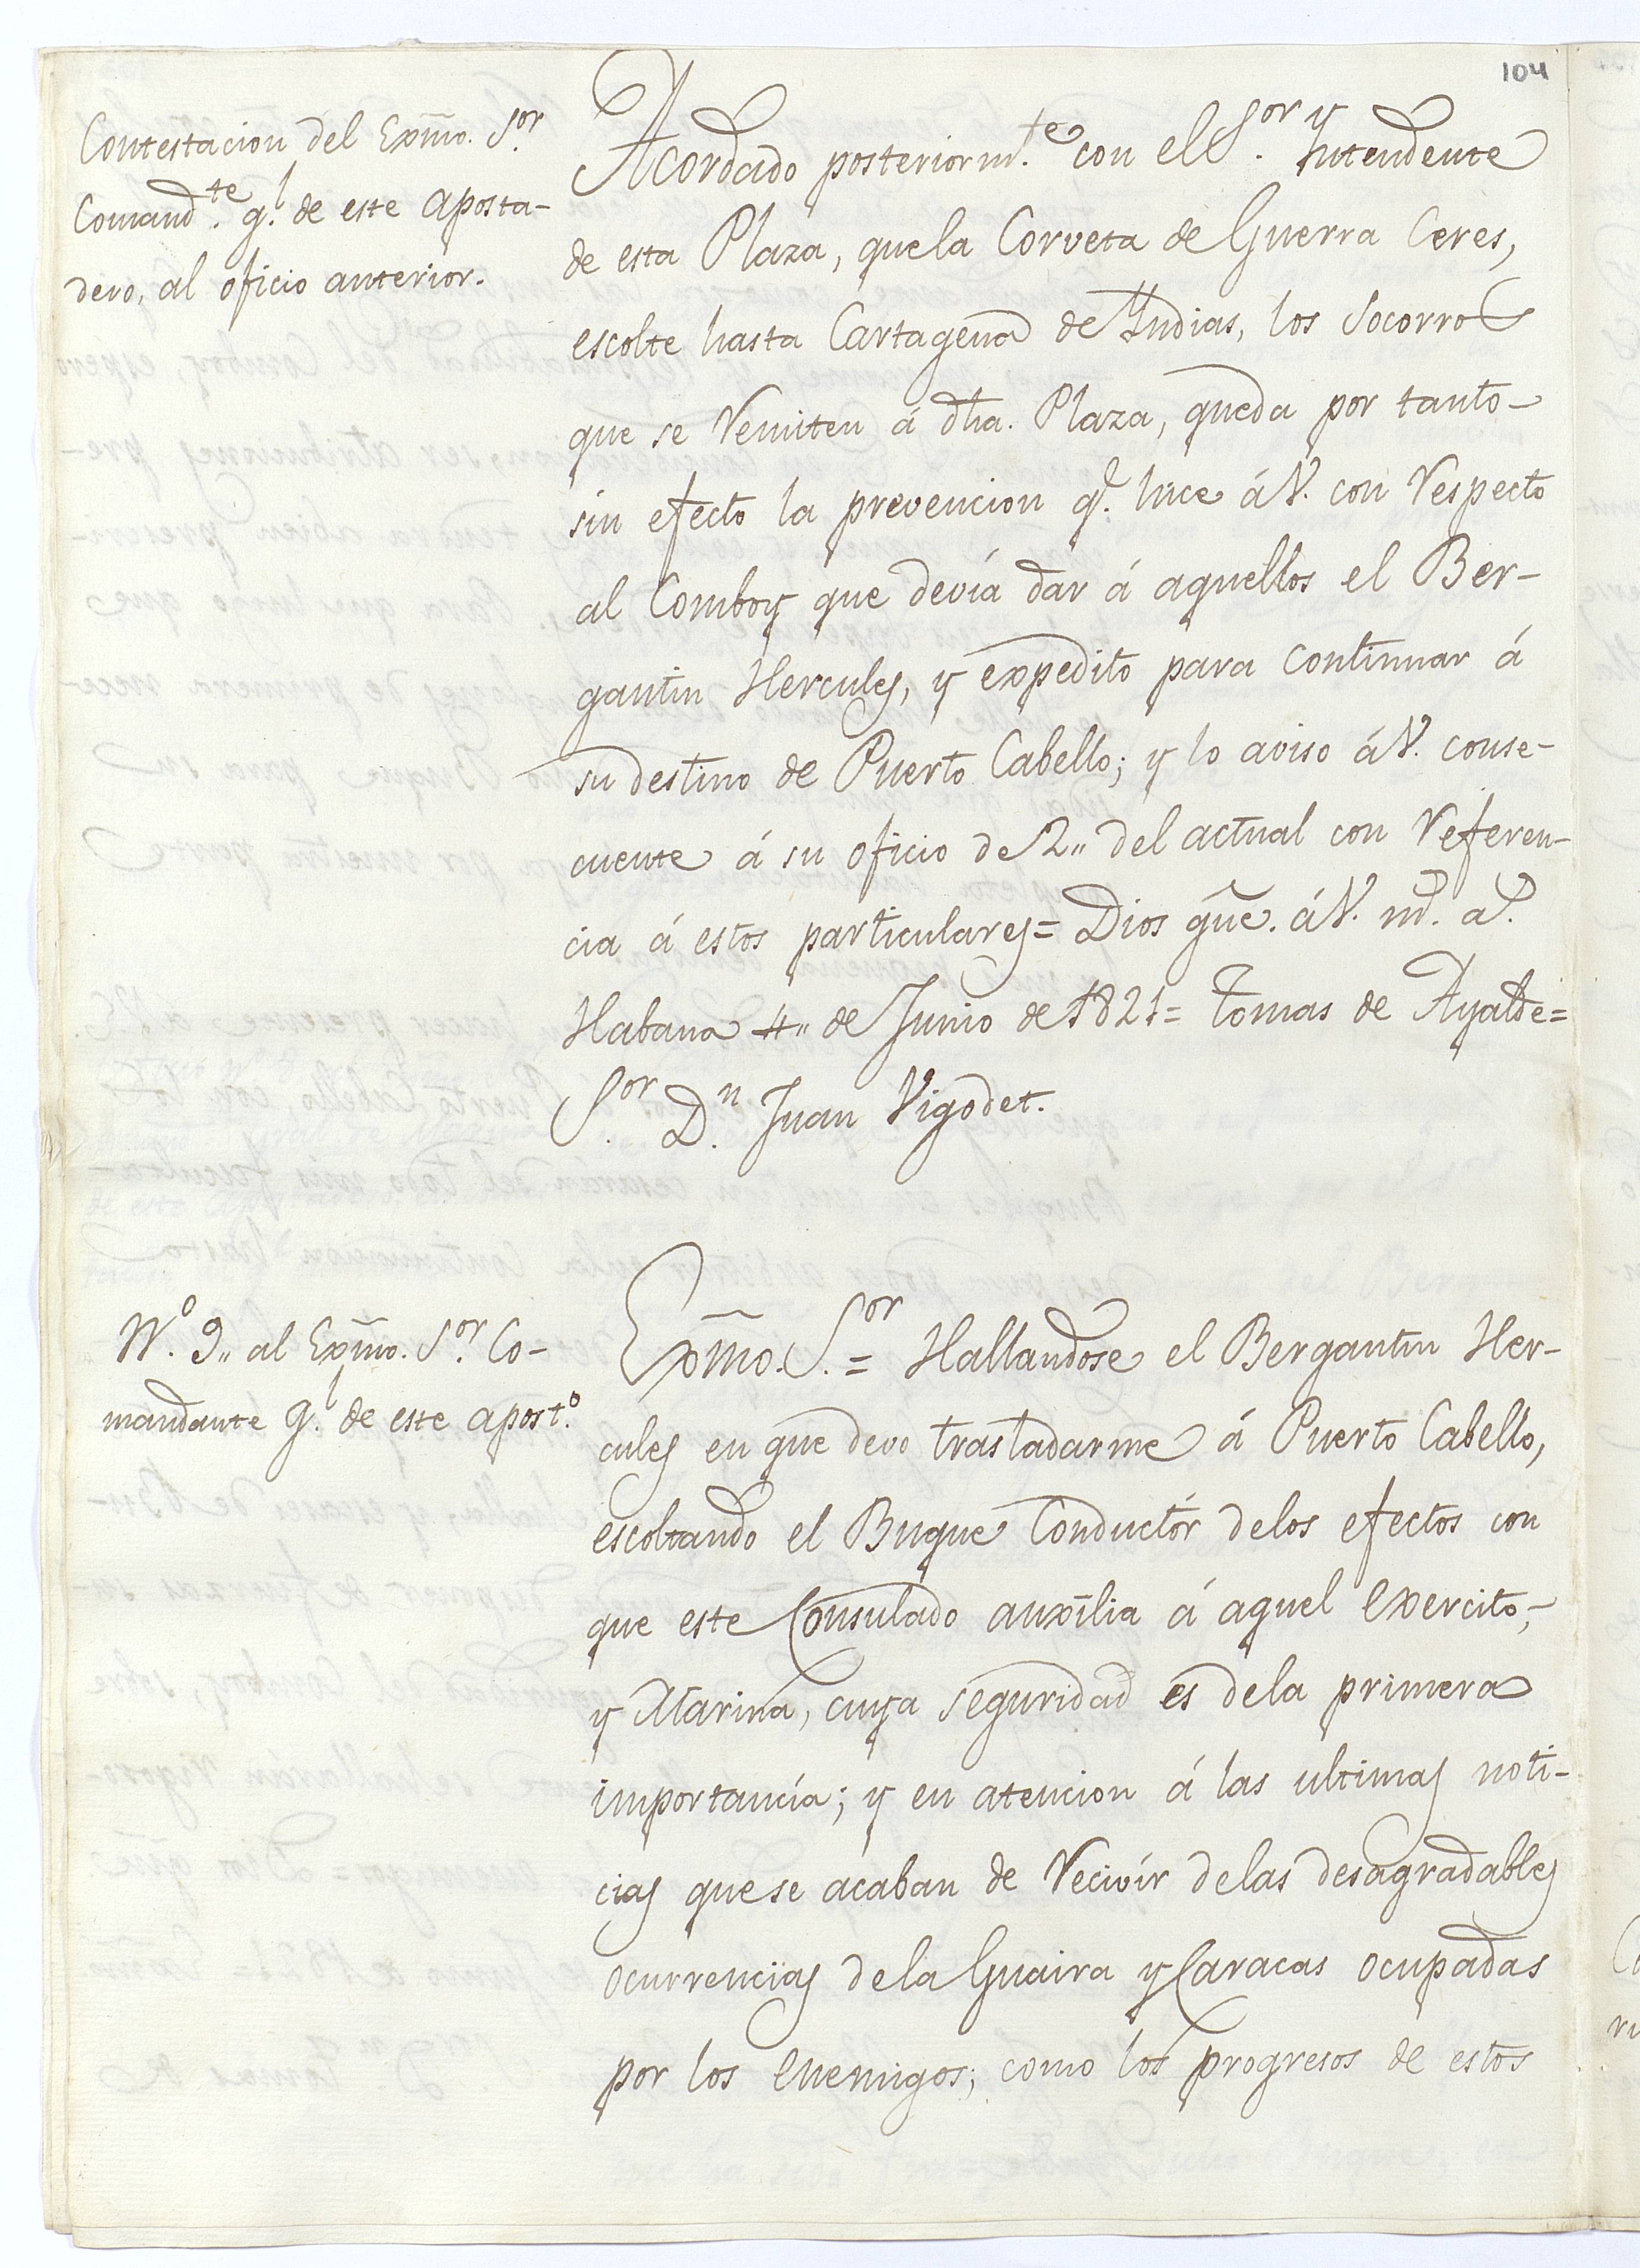 104
Contestacion del Exmo. Sor.
Comandte. gl. de este aposta-
dero, al oficio anterior.
Acordado posteriormte. con el Sor. Yntendente
de esta Plaza, que la Corveta de Guerra Ceres,
escolte hasta Cartagena de Yndias, los Socorros
que se Remiten á dha. Plaza, queda por tanto-
sin efecto la prevencion q. hice á V. con Respecto
al Comboy que devía dar á aquellos el Ber-
gantin Hercules, y expedito para continuar á
su destino de Puerto Cabello; y lo aviso á V. conse-
cuente á su oficio de 2,, del actual con Referen-
cia á estos particulares= Dios gue. á V. ms. as.
Habana 4,, de Junio de 1821= Tomas de Ayalde=
Sor. Dn. Juan Vigodet.
No. 9,, al Exmo. Sor. Co-
mandante gl. de este aposto.
Exmo. Sor. = Hallandose el Bergantin Her-
cules en que devo trasladarme á Puerto Cabello,
escoltando el Buque Conductór delos efectos con
que este Consulado auxîlia á aquel Exercito,-
y Marina, cuya seguridad es dela primera
importancía; y en atencion á las ultimas noti-
cias que se acaban de Recivír delas desagradables
ocurrencias de la Guaira y Caracas ocupadas
por los Enemigos; como los progresos de estos